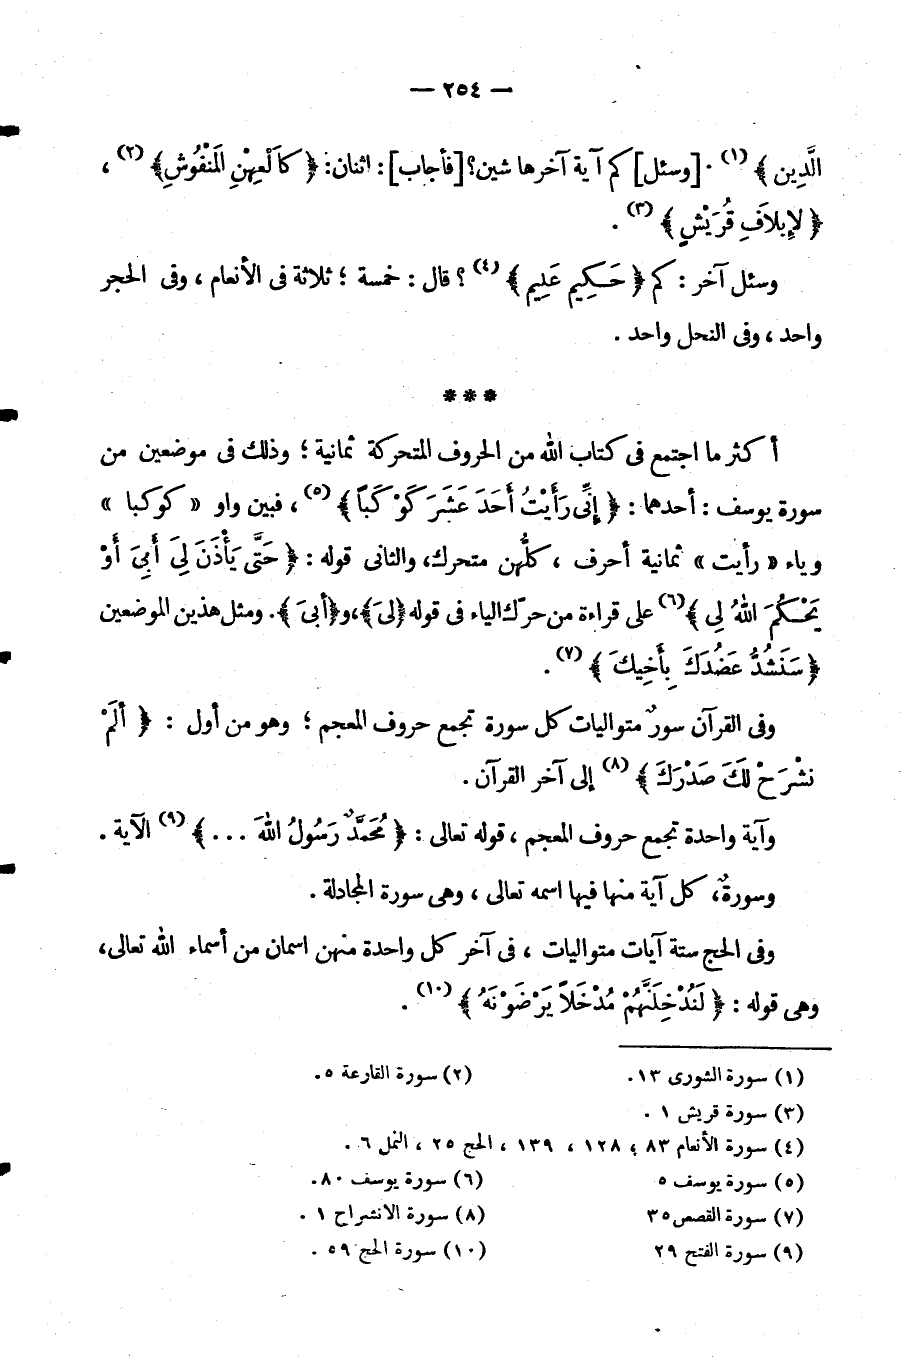 — ٢٥٤ —
الَّدِين ﴾ (١) . [وسئل] كم آية آخرها شين؟ [فأجاب] : اثنان: ﴿ كَالْعِهْنِ الْمَنْفُوشِ﴾ (٢) ،
﴿ لإِيلاَفِ قُرَيْشٍ ﴾ (٣) .
وسئل آخر : كم ﴿ حَكِيم عَلِيم ﴾ (٤) ؟ قال : خمسة ؛ ثلاثة فى الأنعام ، وفى الحجر
واحد ، وفى النحل واحد .
***
أكثر ما اجتمع فى كتاب الله من الحروف المتحركة ثمانية ؛ وذلك فى موضعين من
سورة يوسف : أحدهما : ﴿ إِنِّى رَأَيْتُ أَحَدَ عَشَرَ كَوْكَبًا ﴾ (٥) ، فبين واو « كوكبا »
وياء « رأيت » ثمانية أحرف ، كلُّهن متحرك، والثانى قوله : ﴿ حَتَّى يَأْذَنَ لِىَ أَبِىَ أَوْ
يَحْكُمَ اللهُ لِي ﴾(٦) على قراءة من حرّك الياء فى قوله ﴿لىَ﴾،و﴿أبىَ﴾. ومثل هذين الموضعين
﴿ سَنَشُدُّ عَضُدَكَ بِأَخِيكَ ﴾ (٧) .
وفى القرآن سورٌ متواليات كل سورة تجمع حروف المعجم ؛ وهو من أول : ﴿ أَلَمْ
نَشْرَحْ لَكَ صَدْرَكَ ﴾ (٨) إلى آخر القرآن .
وآية واحدة تجمع حروف المعجم ، قوله تعالى : ﴿ مُحَمَّدٌ رَسُولُ اللهِ ... ﴾ (٩) الآية .
وسورةٌ، كل آية منها فيها اسمه تعالى ، وهى سورة المجادلة .
وفى الحج ستة آيات متواليات ، فى آخر كل واحدة منهن اسمان من أسماء الله تعالى،
وهى قوله : ﴿ لَنُدْخِلَنَّهُمْ مُدْخَلاً يَرْضَوْنَهُ ﴾ (١٠) .
(١) سورة الشورى ١٣. (٢) سورة القارعة ٥.
(٣) سورة قريش ١ .
(٤) سورة الأنعام ٨٣ ، ١٢٨ ، ١٣٩ ، الحج ٢٥ ، النمل ٦ .
(٥) سورة يوسف ٥ (٦) سورة يوسف ٨٠.
(٧) سورة القصص٣٥ (٨) سورة الانشراح ١ .
(٩) سورة الفتح ٢٩ (١٠) سورة الحج ٥٩ .